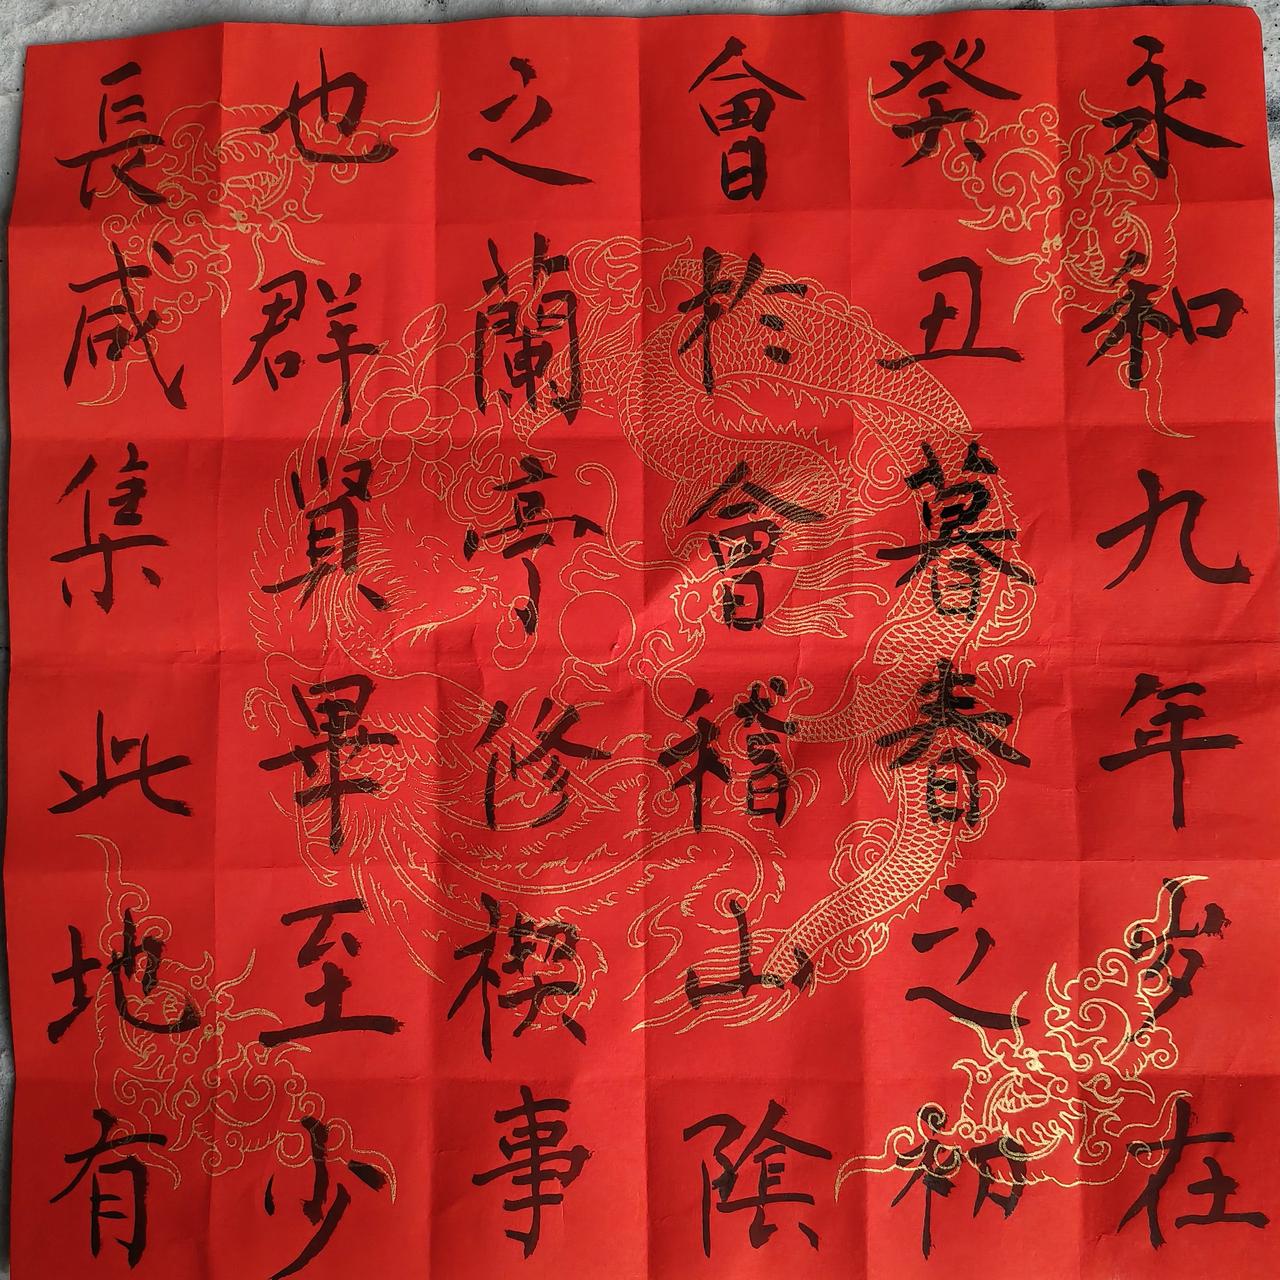 永和九年岁在
癸丑暮春之初
會扵會稽山陰
之蘭亭修禊事
也群賢畢至少
長咸集此地有